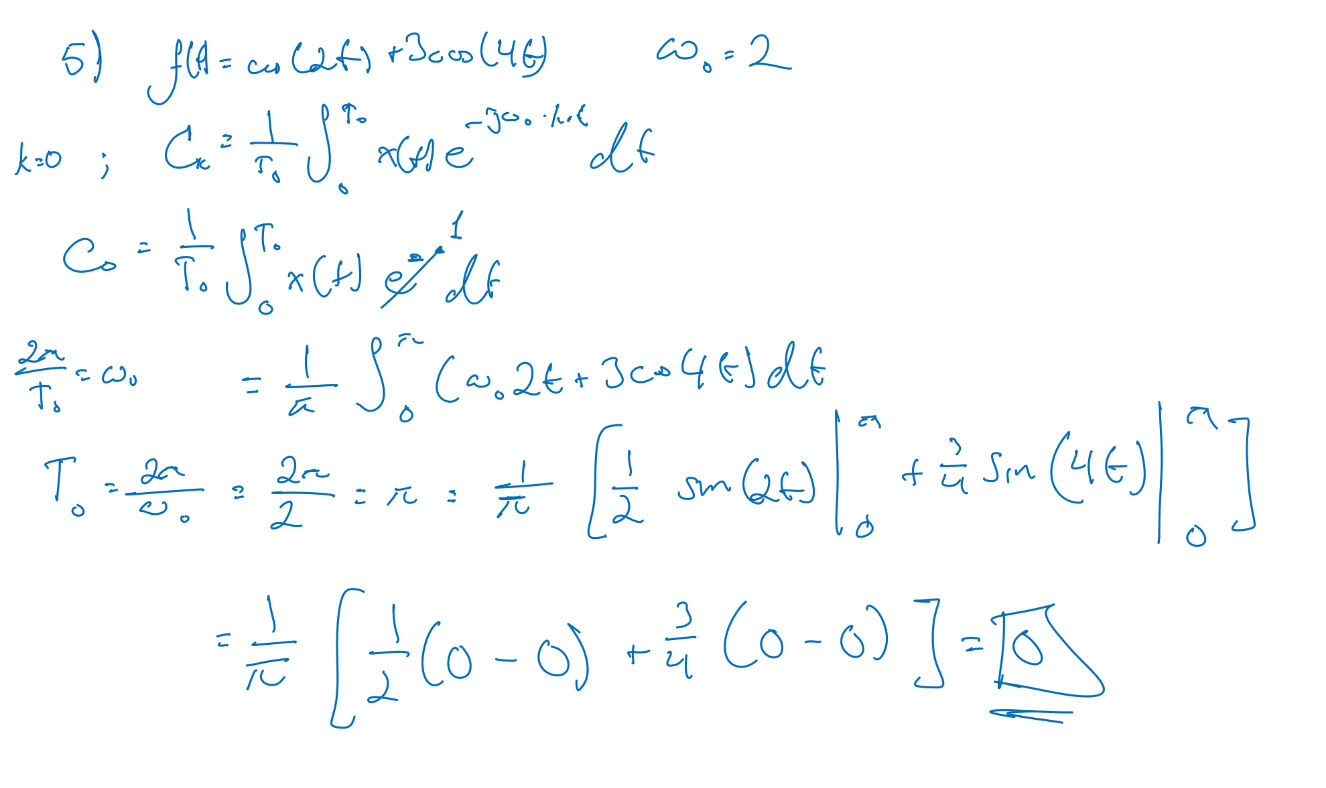 5) f(t) = cos(2t) + 3cos(4t) ω₀ = 2
k=0 ; Cₖ = 1/T₀ ∫₀^T₀ x(t) e^(-jω₀·k·t) dt
C₀ = 1/T₀ ∫₀^T₀ x(t) e⁰ 1 dt
2π/T₀ = ω₀ = 1/π ∫₀^π (cos 2t + 3cos 4t) dt
T₀ = 2π/ω₀ = 2π/2 = π = 1/π [ 1/2 sin(2t) |₀^π + 3/4 sin(4t) |₀^π ]
= 1/π [ 1/2 (0 - 0) + 3/4 (0 - 0) ] = 0